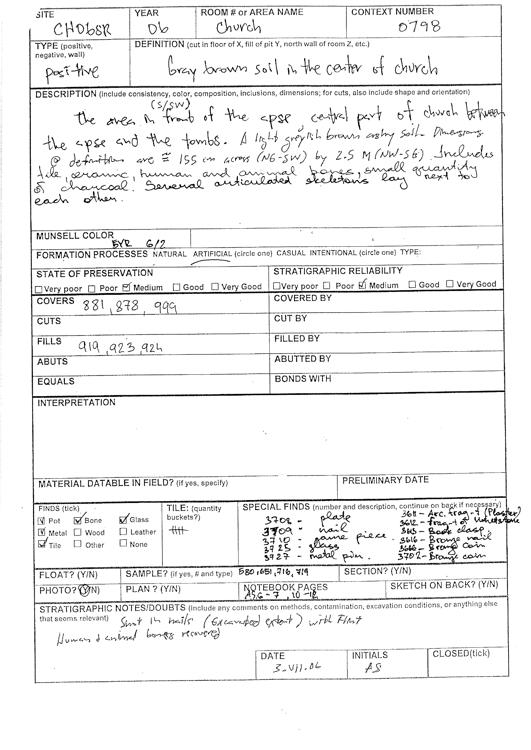 SITE YEAR ROOM # or AREA NAME CONTEXT NUMBER
CH06SR 06 Church 0798
TYPE (positive, negative, wall) DEFINITION (cut in floor of X, fill of pit Y, north wall of room Z, etc.)
positive Gray brown soil in the center of church
DESCRIPTION (include consistency, color, composition, inclusions, dimensions; for cuts, also include shape and orientation)
(S/SW)
the area in front of the apse central part of church between
the apse and the tombs. A light greyish brown ashy soil. Dimensions
@ definition are ≅ 155 cm across (NE-SW) by 2.5 M (NW-SE). Includes
tile, ceramic, human and animal bones, small quantity
of charcoal. Several articulated skeletons lay next to
each other.
MUNSELL COLOR
6/2
FORMATION PROCESSES NATURAL ARTIFICIAL (circle one) CASUAL INTENTIONAL (circle one) TYPE:
STATE OF PRESERVATION STRATIGRAPHIC RELIABILITY
☐Very poor ☐ Poor ☑ Medium ☐ Good ☐ Very Good ☐Very poor ☐ Poor ☑ Medium ☐ Good ☐ Very Good
COVERS 881, 878, 999 COVERED BY
CUTS CUT BY
FILLS 919, 923, 924 FILLED BY
ABUTS ABUTTED BY
EQUALS BONDS WITH
INTERPRETATION
MATERIAL DATABLE IN FIELD? (if yes, specify) PRELIMINARY DATE
FINDS (tick) TILE: (quantity buckets?) SPECIAL FINDS (number and description, continue on back if necessary)
☑ Pot ☑ Bone ☑ Glass
☑ Metal ☐ Wood ☐ Leather
☑ Tile ☐ Other ☐ None
3708 - plate
3709 - nail
3710 - game piece
3725 - glass
3727 - metal pin
3611 - Arc. frag-t (Plaster)
3612 - frag-t of
3613 - Book clasp
3616 - Bronze nail
3666 - Bronze coin
3702 - Bronze coin
FLOAT? (Y/N) SAMPLE? (if yes, # and type) 580, 651, 716, 719 SECTION? (Y/N)
PHOTO? (Y/N) PLAN ? (Y/N) NOTEBOOK PAGES SKETCH ON BACK? (Y/N)
AS 6-7, 10-12
STRATIGRAPHIC NOTES/DOUBTS (Include any comments on methods, contamination, excavation conditions, or anything else
that seems relevant) in (excavated extent) with
Human & animal bones recovered
DATE INITIALS CLOSED(tick)
3-VII.06 AS